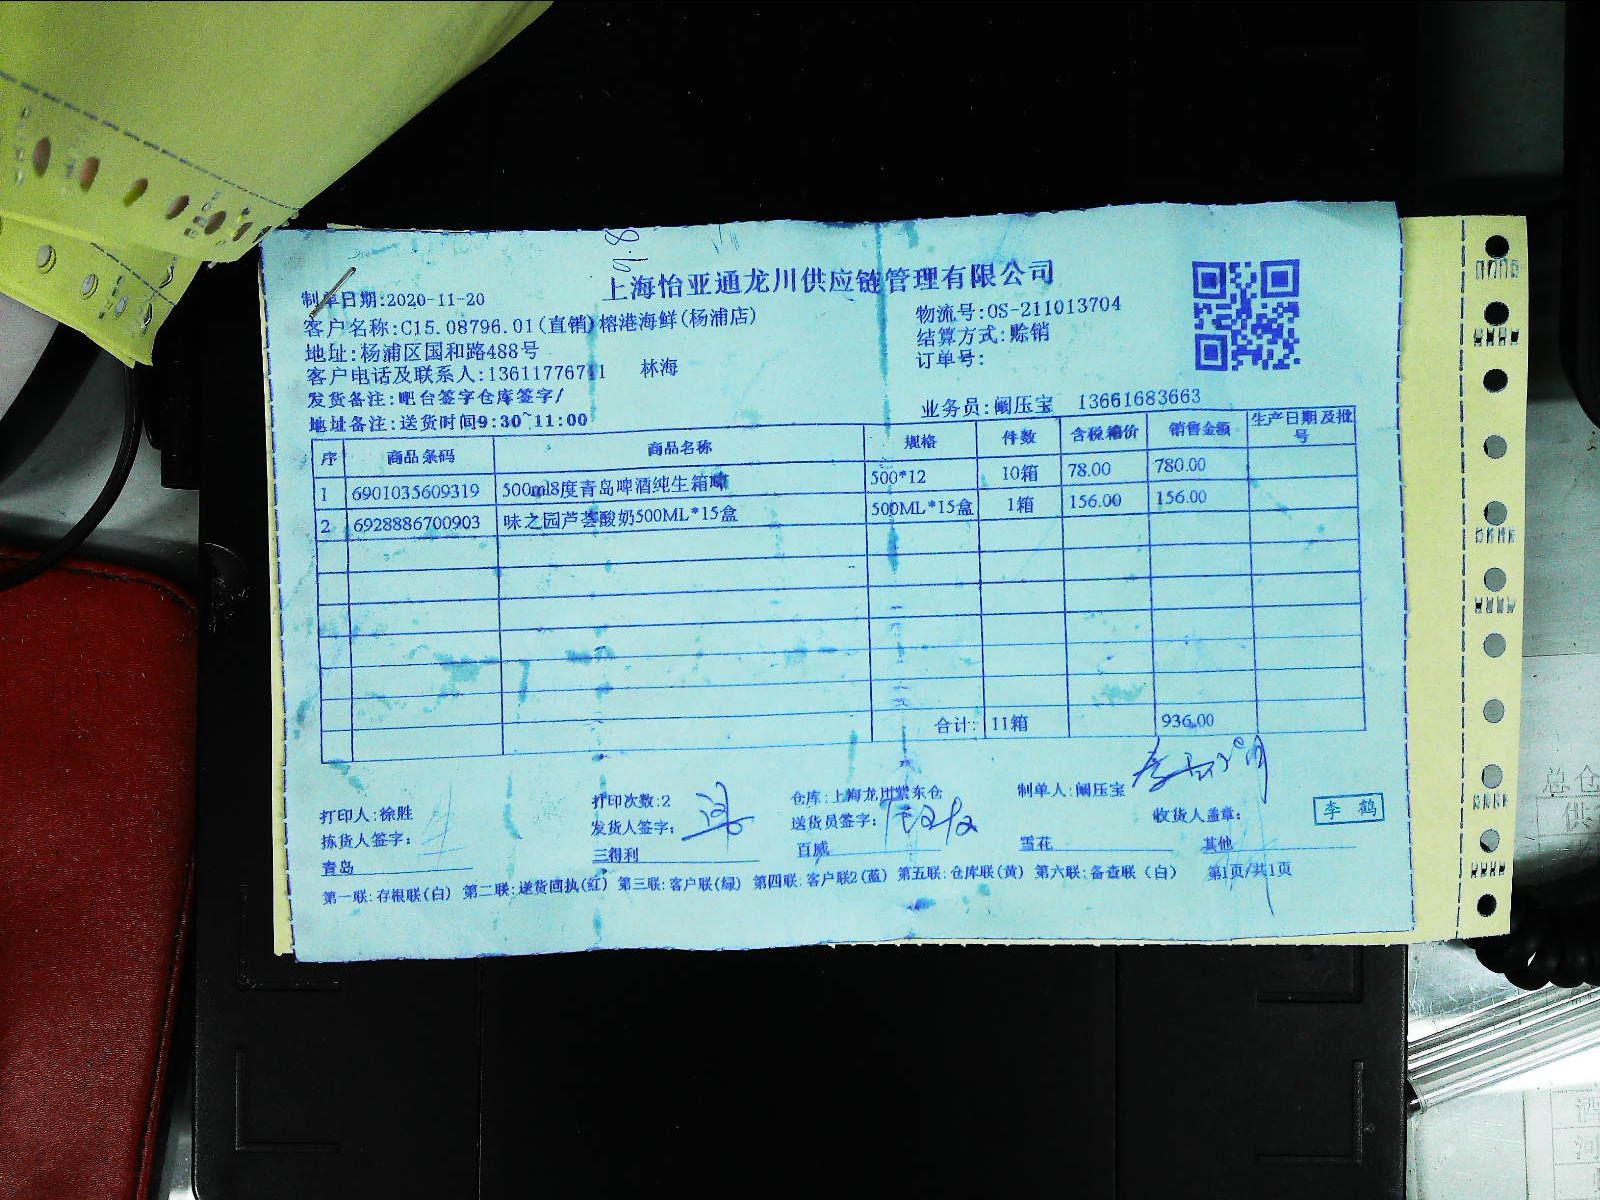 上海怡亚通龙川供应链管理有限公司
制单日期:2020-11-20
客户名称:C15.08796.01(直销)榕港海鲜(杨浦店)
物流号:OS-211013704
地址:杨浦区国和路488号
结算方式:赊销
客户电话及联系人:13611776711 林海
订单号:
发货备注:吧台签字仓库签字/
地址备注:送货时间9:30~11:00
业务员:阚压宝 13661683663
序 商品条码 商品名称 规格 件数 含税箱价 销售金额 生产日期及批号
1 6901035609319 500ml8度青岛啤酒纯生箱啤 500*12 10箱 78.00 780.00
2 6928886700903 味之园芦荟酸奶500ML*15盒 500ML*15盒 1箱 156.00 156.00
合计: 11箱 936.00
打印人:徐胜 打印次数:2 仓库:上海龙川紫东仓 制单人:阚压宝
拣货人签字: 发货人签字: 送货员签字: 收货人盖章: 李鹤
青岛 三得利 百威 雪花 其他
第一联:存根联(白) 第二联:送货回执(红) 第三联:客户联(绿) 第四联:客户联2(蓝) 第五联:仓库联(黄) 第六联:备查联(白) 第1页/共1页
总仓
供